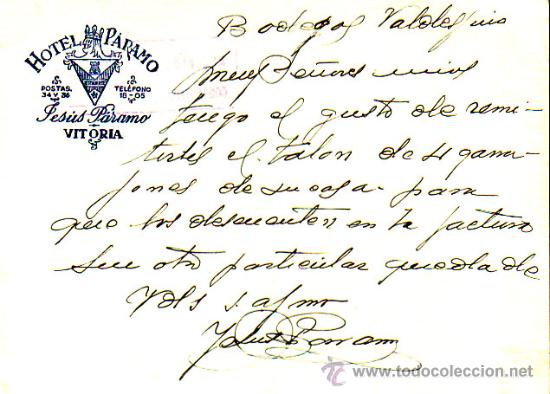 HOTEL PÁRAMO
POSTAS, 34 Y 36
TELÉFONO 18-05
Jesús Páramo
VITORIA
Bodegas Valdespino
Muy Señores mios
tengo el gusto de remi
tirles el talon de 4 garra
fones de su casa para
que los descuenten en la factura
Sin otro particular queda de
Vds s. afmo
Jesus Paramo
todocoleccion
www.todocoleccion.net